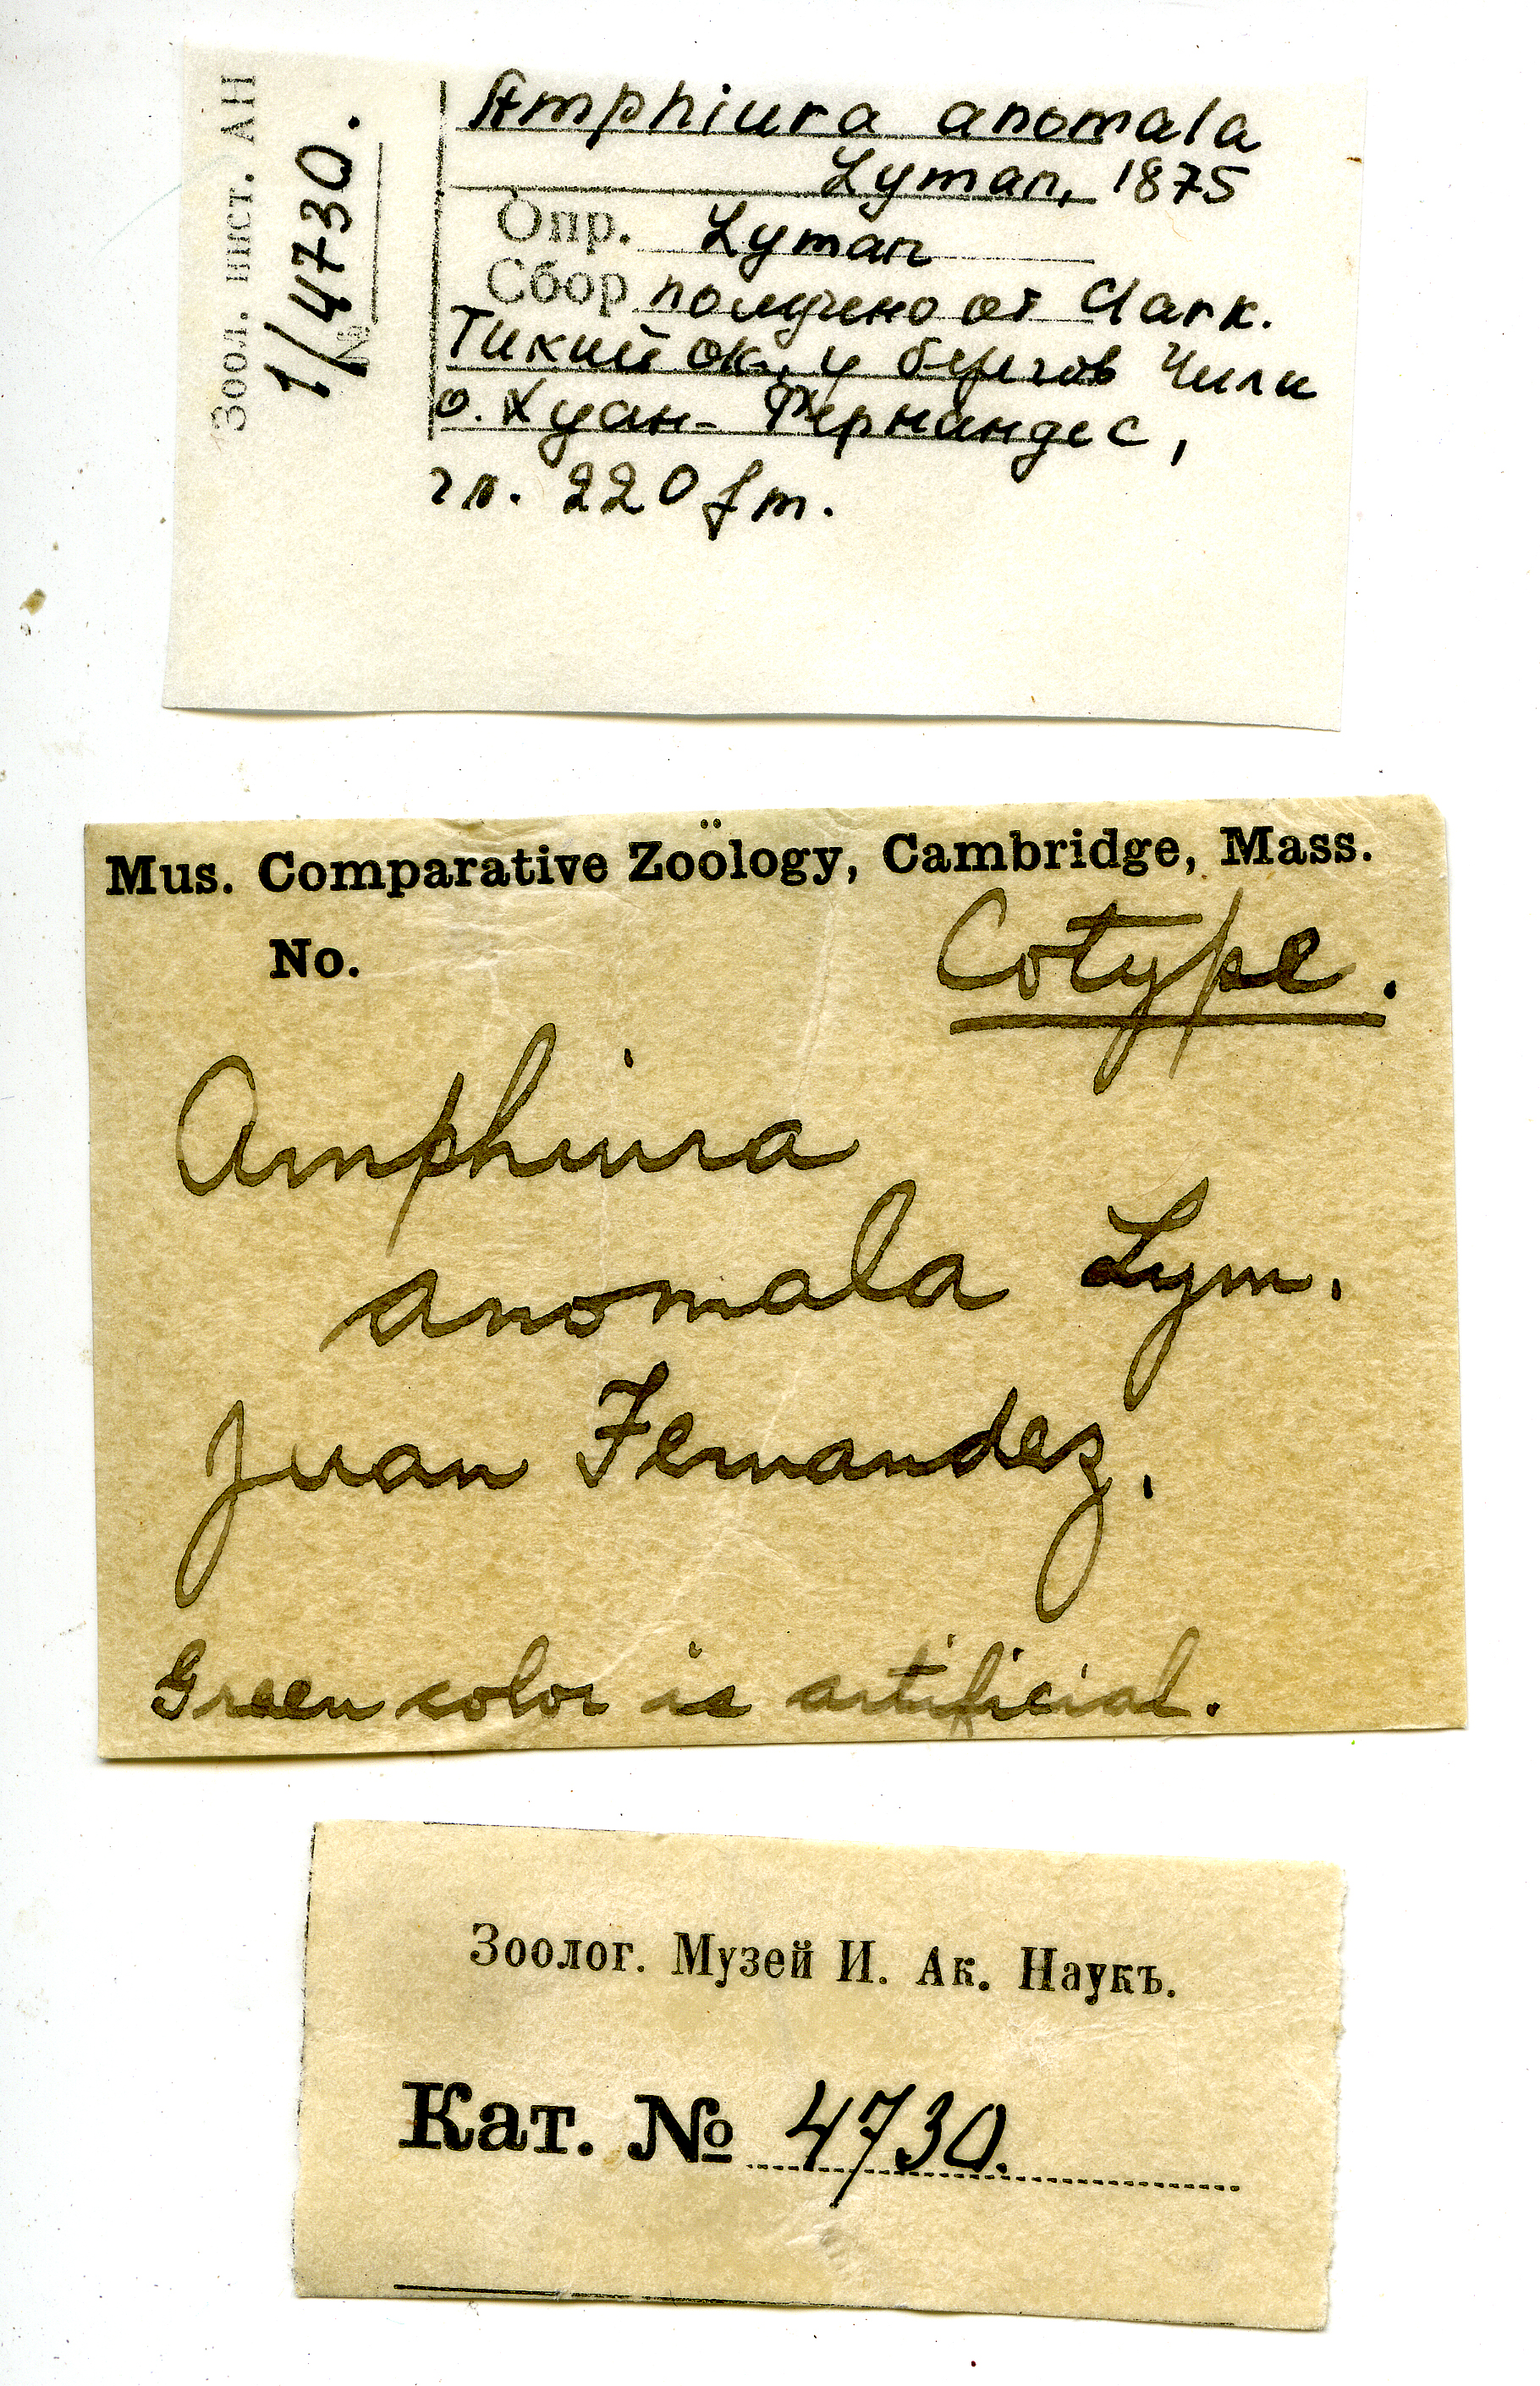 Зоол. инст. АН
№ 1/4730.
Amphiura anomala
Lyman, 1875
Опр. Lyman
Сбор получено от Clark.
Тихий ок., у берегов Чили
о. Хуан-Фернандес,
гл. 220 fm.
Mus. Comparative Zoölogy, Cambridge, Mass.
No.
Cotype.
Amphiura
anomala Lym.
Juan Fernandez.
Green color is artificial.
Зоолог. Музей И. Ак. Наукъ.
Кат. № 4730.